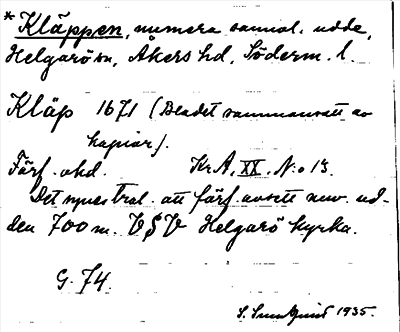 * Kläppen, numera sannol. udde,
Helgarö sn, Åkers hd, Söderm. l.
Kläp 1671 (Bladet sammansatt av
kopior).
Förf. okd. Kr A. XX. No 13.
Det synes tral. att förf. avsett nuv. ud-
den 700 m. V S V Helgarö kyrka.
G. 74.
S. Sundquist 1935.